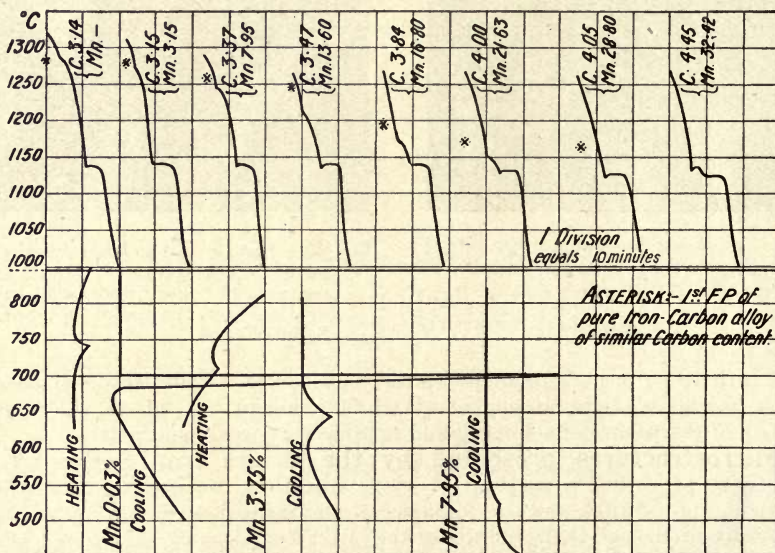 °C
1300
1250
1200
1150
1100
1050
1000
800
750
700
650
600
550
500
* { C. 3·14
Mn. –
* { C. 3·15
Mn. 3·15
* { C. 3·37
Mn. 7·95
* { C. 3·47
Mn. 13·60
* { C. 3·84
Mn. 16·80
* { C. 4·00
Mn. 21·63
* { C. 4·05
Mn. 28·80
{ C. 4·45
Mn. 32·42
1 Division
equals 10 minutes
ASTERISK:- 1st F.P of
pure Iron-Carbon alloy
of similar Carbon content.
HEATING
Mn 0·03%
COOLING
HEATING
Mn 3·75%
COOLING
Mn 7·95%
COOLING